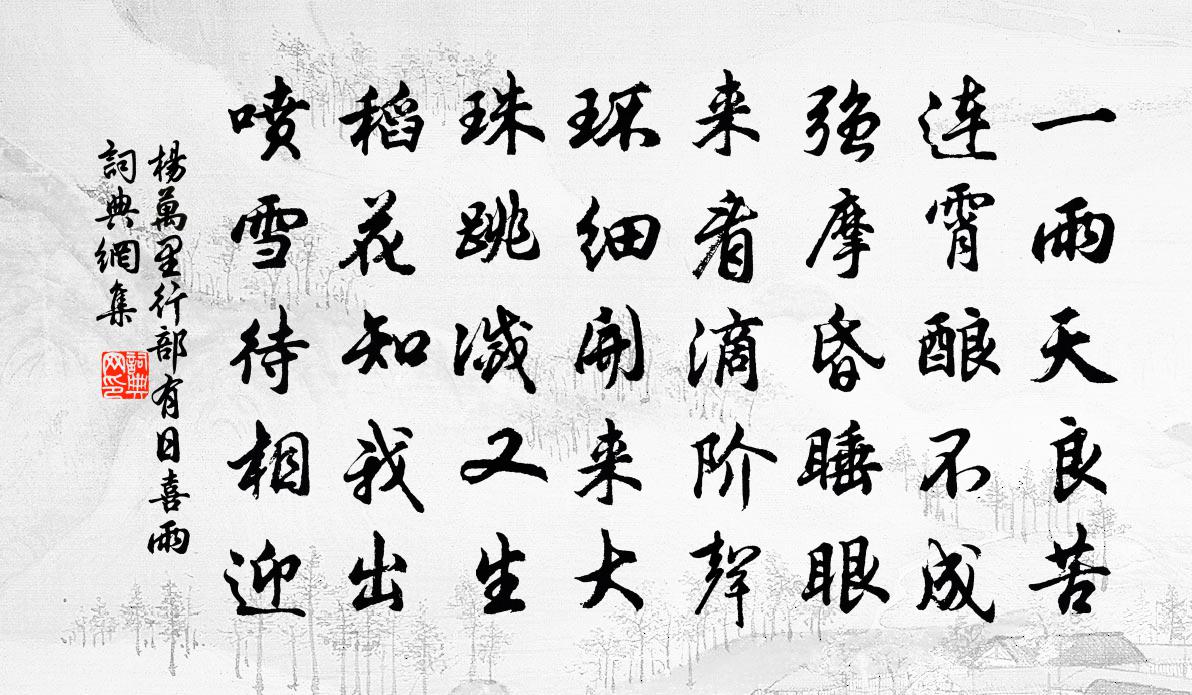 一雨天良苦
連霄酿不成
强摩昏睡眼
来看滴阶聲
环细開来大
珠跳滅又生
稻花知我出
喷雪待相迎
楊萬里行部有日喜雨
詞典網集
詞典网印